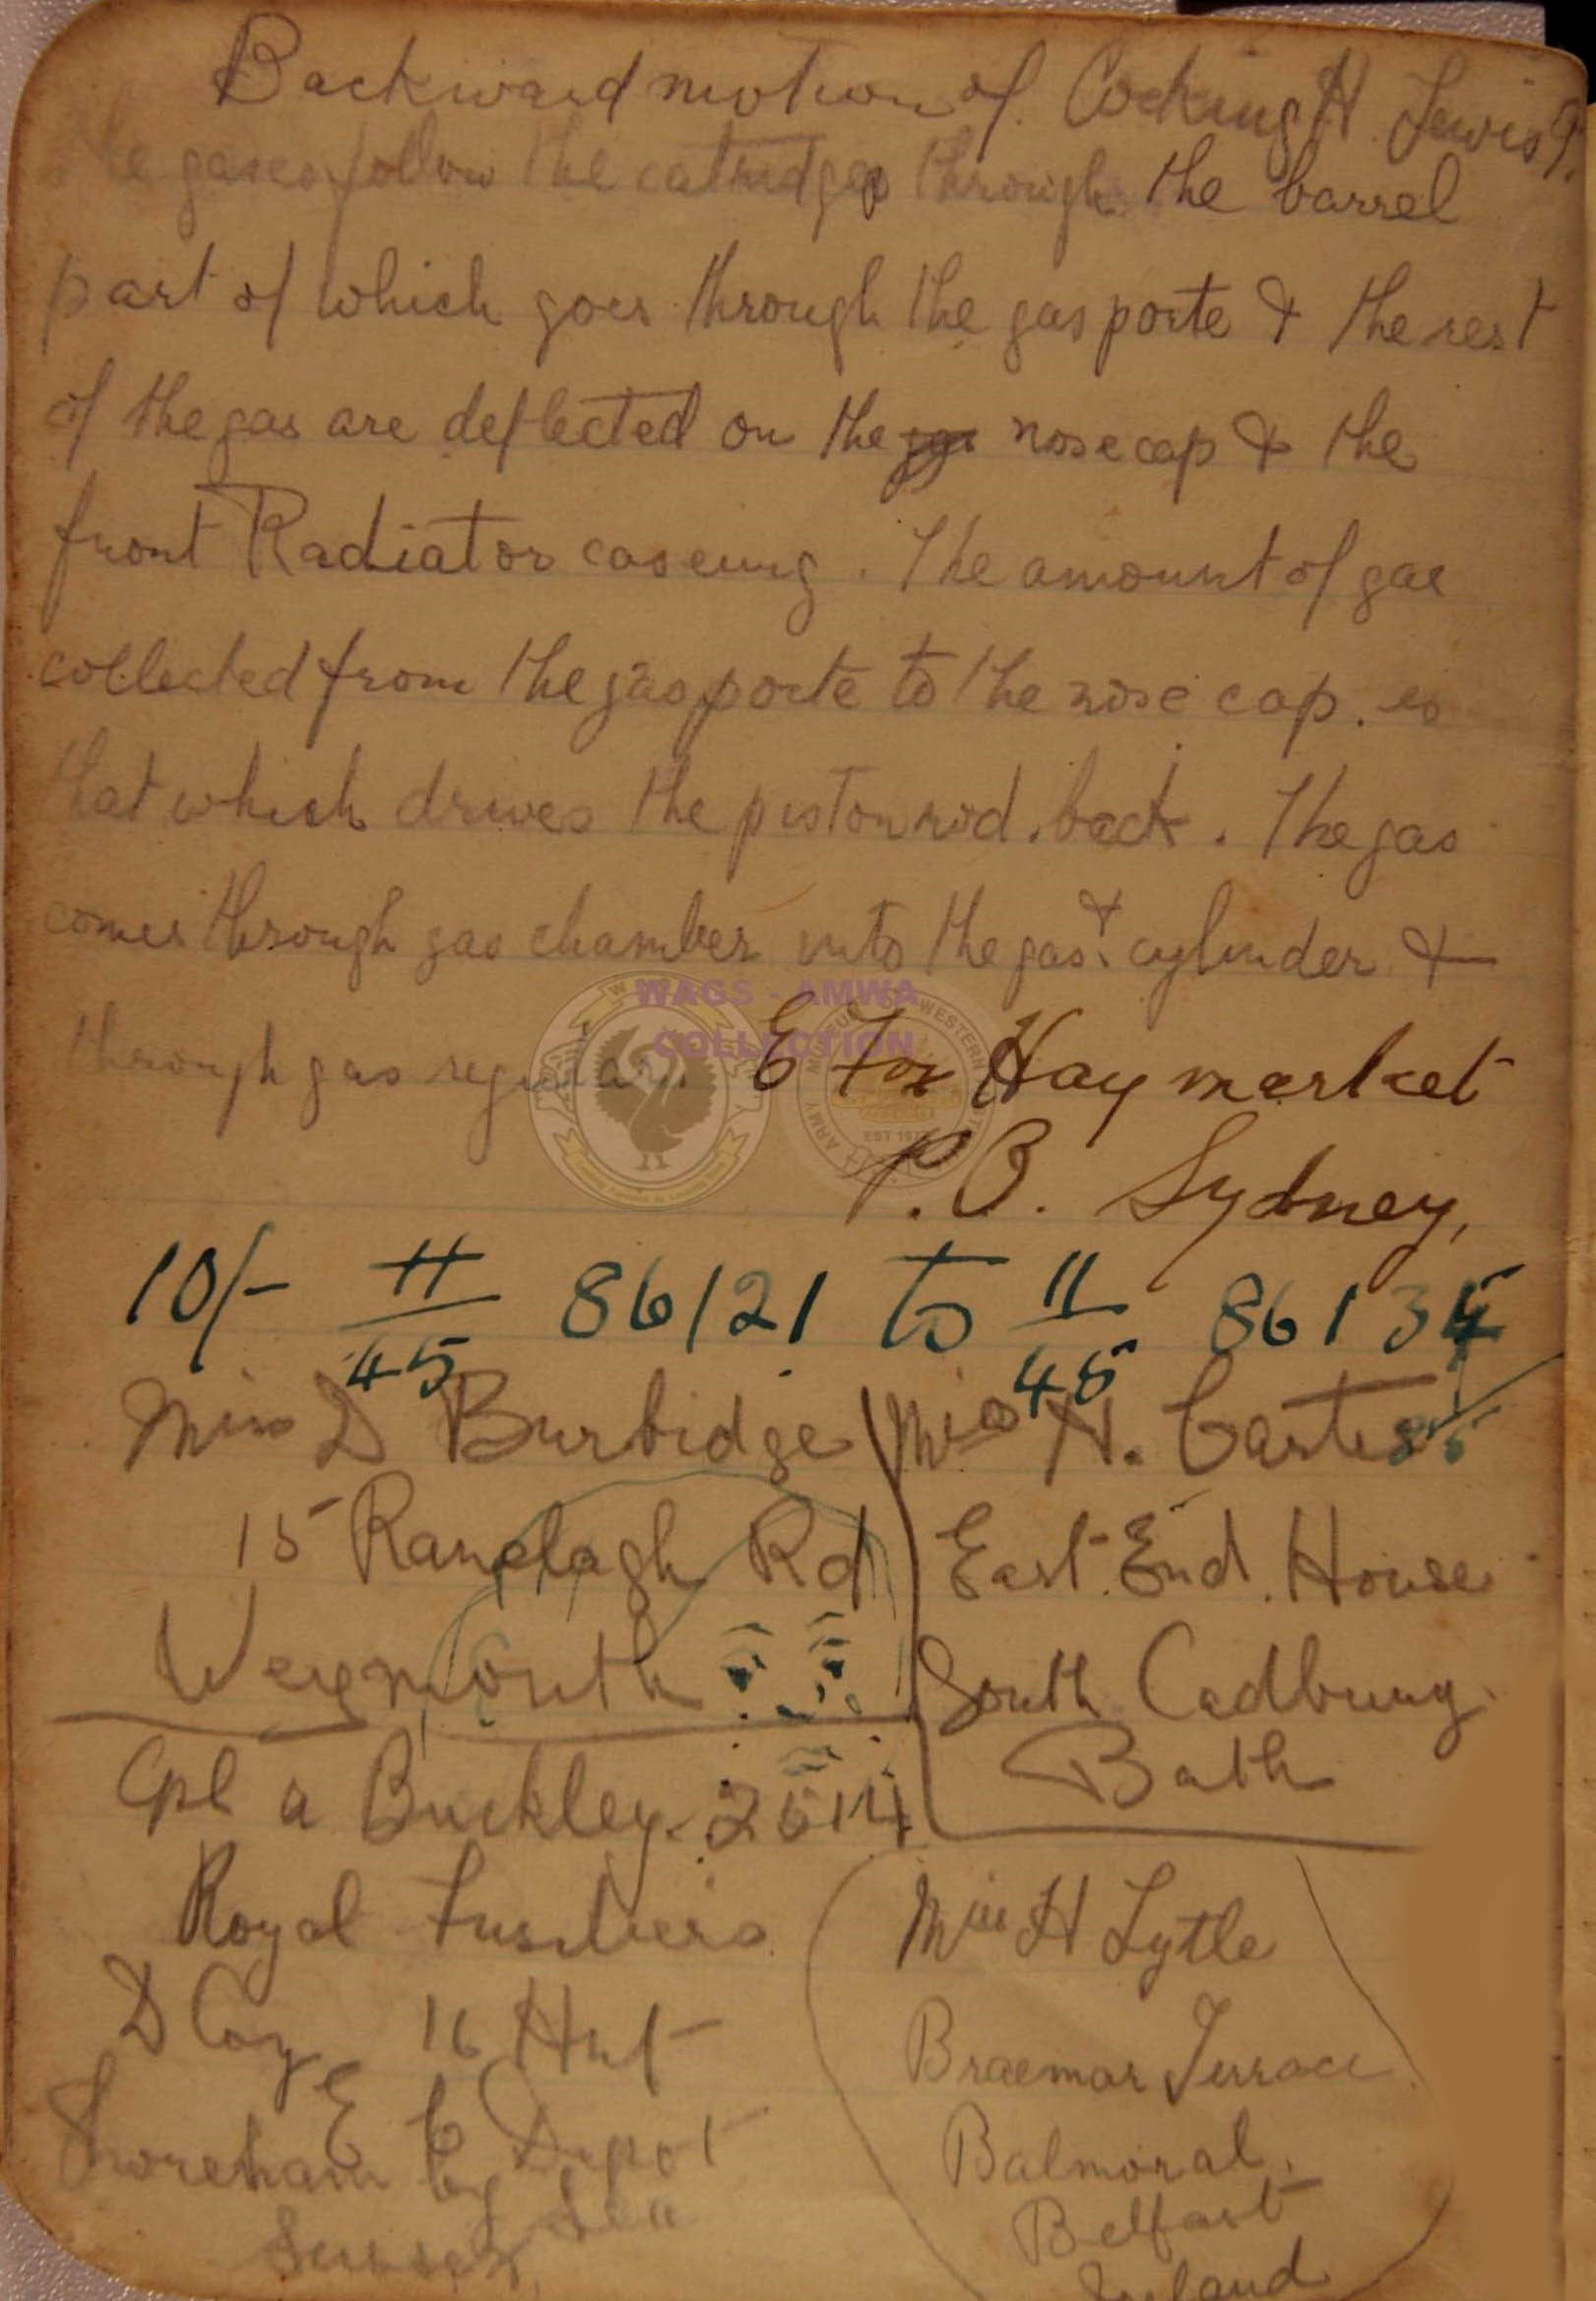 Backward motion of Cocking H Lewis G.
the gases follow the catridges through the barrel
part of which goes through the gas porte & the rest
of the gas are deflected on the nose cap & the
front Radiator caseing. The amount of gas
collected from the gas porte to the nose cap. is
that which drives the piston rod. back. The gas
comes through gas chamber into the gas & cylinder &
through gas regulator
E Fox Haymarket
P.O. Sydney,
10/- 11/45 86121 to 11/45 86134
Miss D Burbidge
15 Ranelagh Rd
Weymouth
Miss N. Carter
East End. House
South Cadbury
Bath
Cpl A Buckley 2514
Royal Fusiliers
D Coy 16 Hut
E C Depot
Shoreham by Sea
Sussex
Miss H Lytle
Braemar Terrace
Balmoral.
Belfast
Ireland
WAGS - AMWA
COLLECTION